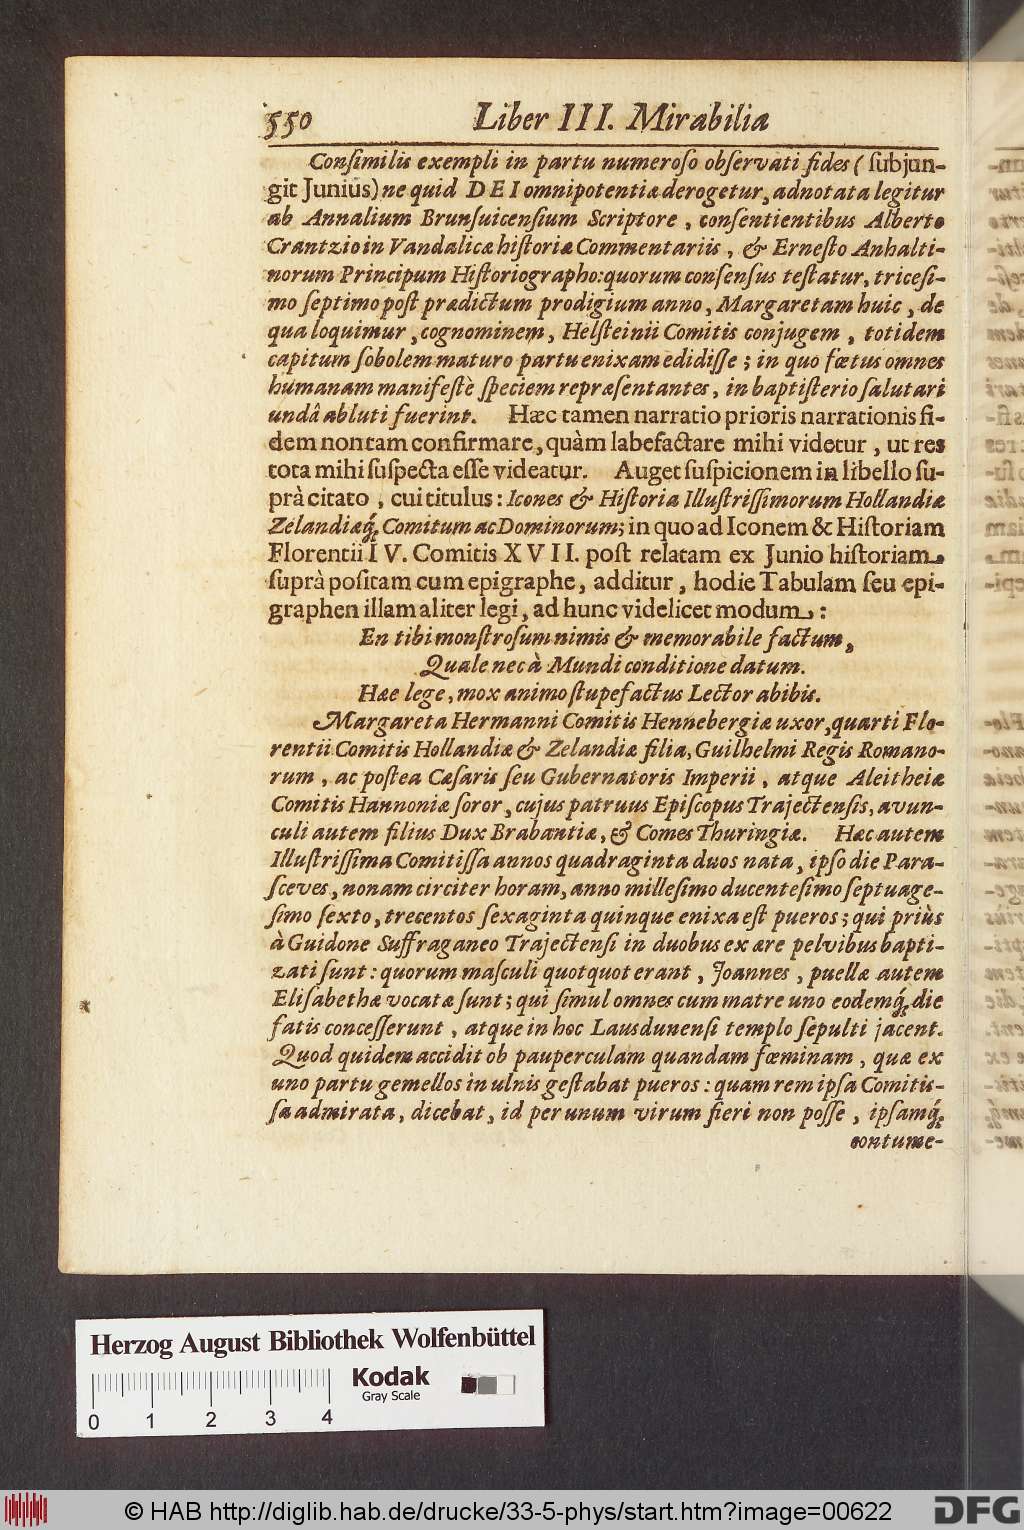 550 Liber III. Mirabilia
Conſimilis exempli in partu numeroſo obſervati fides ( ſubjun-
git Junius) ne quid DEI omnipotentiæ derogetur, adnotata legitur
ab Annalium Brunſuicenſium Scriptore, conſentientibus Alberto
Crantzio in Vandalicæ hiſtoriæ Commentariis, & Erneſto Anhalti-
norum Principum Hiſtoriographo: quorum conſenſus teſtatur, triceſi-
mo ſeptimo poſt prædictum prodigium anno, Margaretam huic, de
qua loquimur, cognominem, Helſteinii Comitis conjugem, totidem
capitum ſobolem maturo partu enixam edidiſſe; in quo fœtus omnes
humanam manifeſtè ſpeciem repræſentantes, in baptiſterio ſalutari
undâ abluti fuerint. Hæc tamen narratio prioris narrationis fi-
dem non tam confirmare, quàm labefactare mihi videtur, ut res
tota mihi ſuſpecta eſſe videatur. Auget ſuſpicionem in libello ſu-
prà citato, cui titulus: Icones & Hiſtoria Illuſtriſſimorum Hollandiæ
Zelandiæq́; Comitum ac Dominorum; in quo ad Iconem & Hiſtoriam
Florentii IV. Comitis XVII. poſt relatam ex Junio hiſtoriam,
ſuprà poſitam cum epigraphe, additur, hodie Tabulam ſeu epi-
graphen illam aliter legi, ad hunc videlicet modum:
En tibi monſtroſum nimis & memorabile factum,
Quale nec à Mundi conditione datum.
Hæc lege, mox animo ſtupefactus Lector abibis.
Margareta Hermanni Comitis Hennebergiæ uxor, quarti Flo-
rentii Comitis Hollandiæ & Zelandiæ filia, Guilhelmi Regis Romano-
rum, ac poſtea Cæſaris ſeu Gubernatoris Imperii, atque Aleitheiæ
Comitis Hannoniæ ſoror, cujus patruus Epiſcopus Trajectenſis, avun-
culi autem filius Dux Brabantiæ, & Comes Thuringiæ. Hæc autem
Illuſtriſſima Comitiſſa annos quadraginta duos nata, ipſo die Para-
ſceves, nonam circiter horam, anno milleſimo ducenteſimo ſeptuage-
ſimo ſexto, trecentos ſexaginta quinque enixa eſt pueros; qui priùs
à Guidone Suffraganeo Trajectenſi in duobus ex ære pelvibus bapti-
zati ſunt: quorum maſculi quotquot erant, Joannes, puellæ autem
Eliſabethæ vocatæ ſunt; qui ſimul omnes cum matre uno eodemq́; die
fatis conceſſerunt, atque in hoc Lausdunenſi templo ſepulti jacent.
Quod quidem accidit ob pauperculam quandam fœminam, quæ ex
uno partu gemellos in ulnis geſtabat pueros: quam rem ipſa Comitiſ-
ſa admirata, dicebat, id per unum virum fieri non poſſe, ipſamq́;
contume-
Herzog August Bibliothek Wolfenbüttel
Kodak
Gray Scale
0 1 2 3 4
© HAB http://diglib.hab.de/drucke/33-5-phys/start.htm?image=00622
DFG